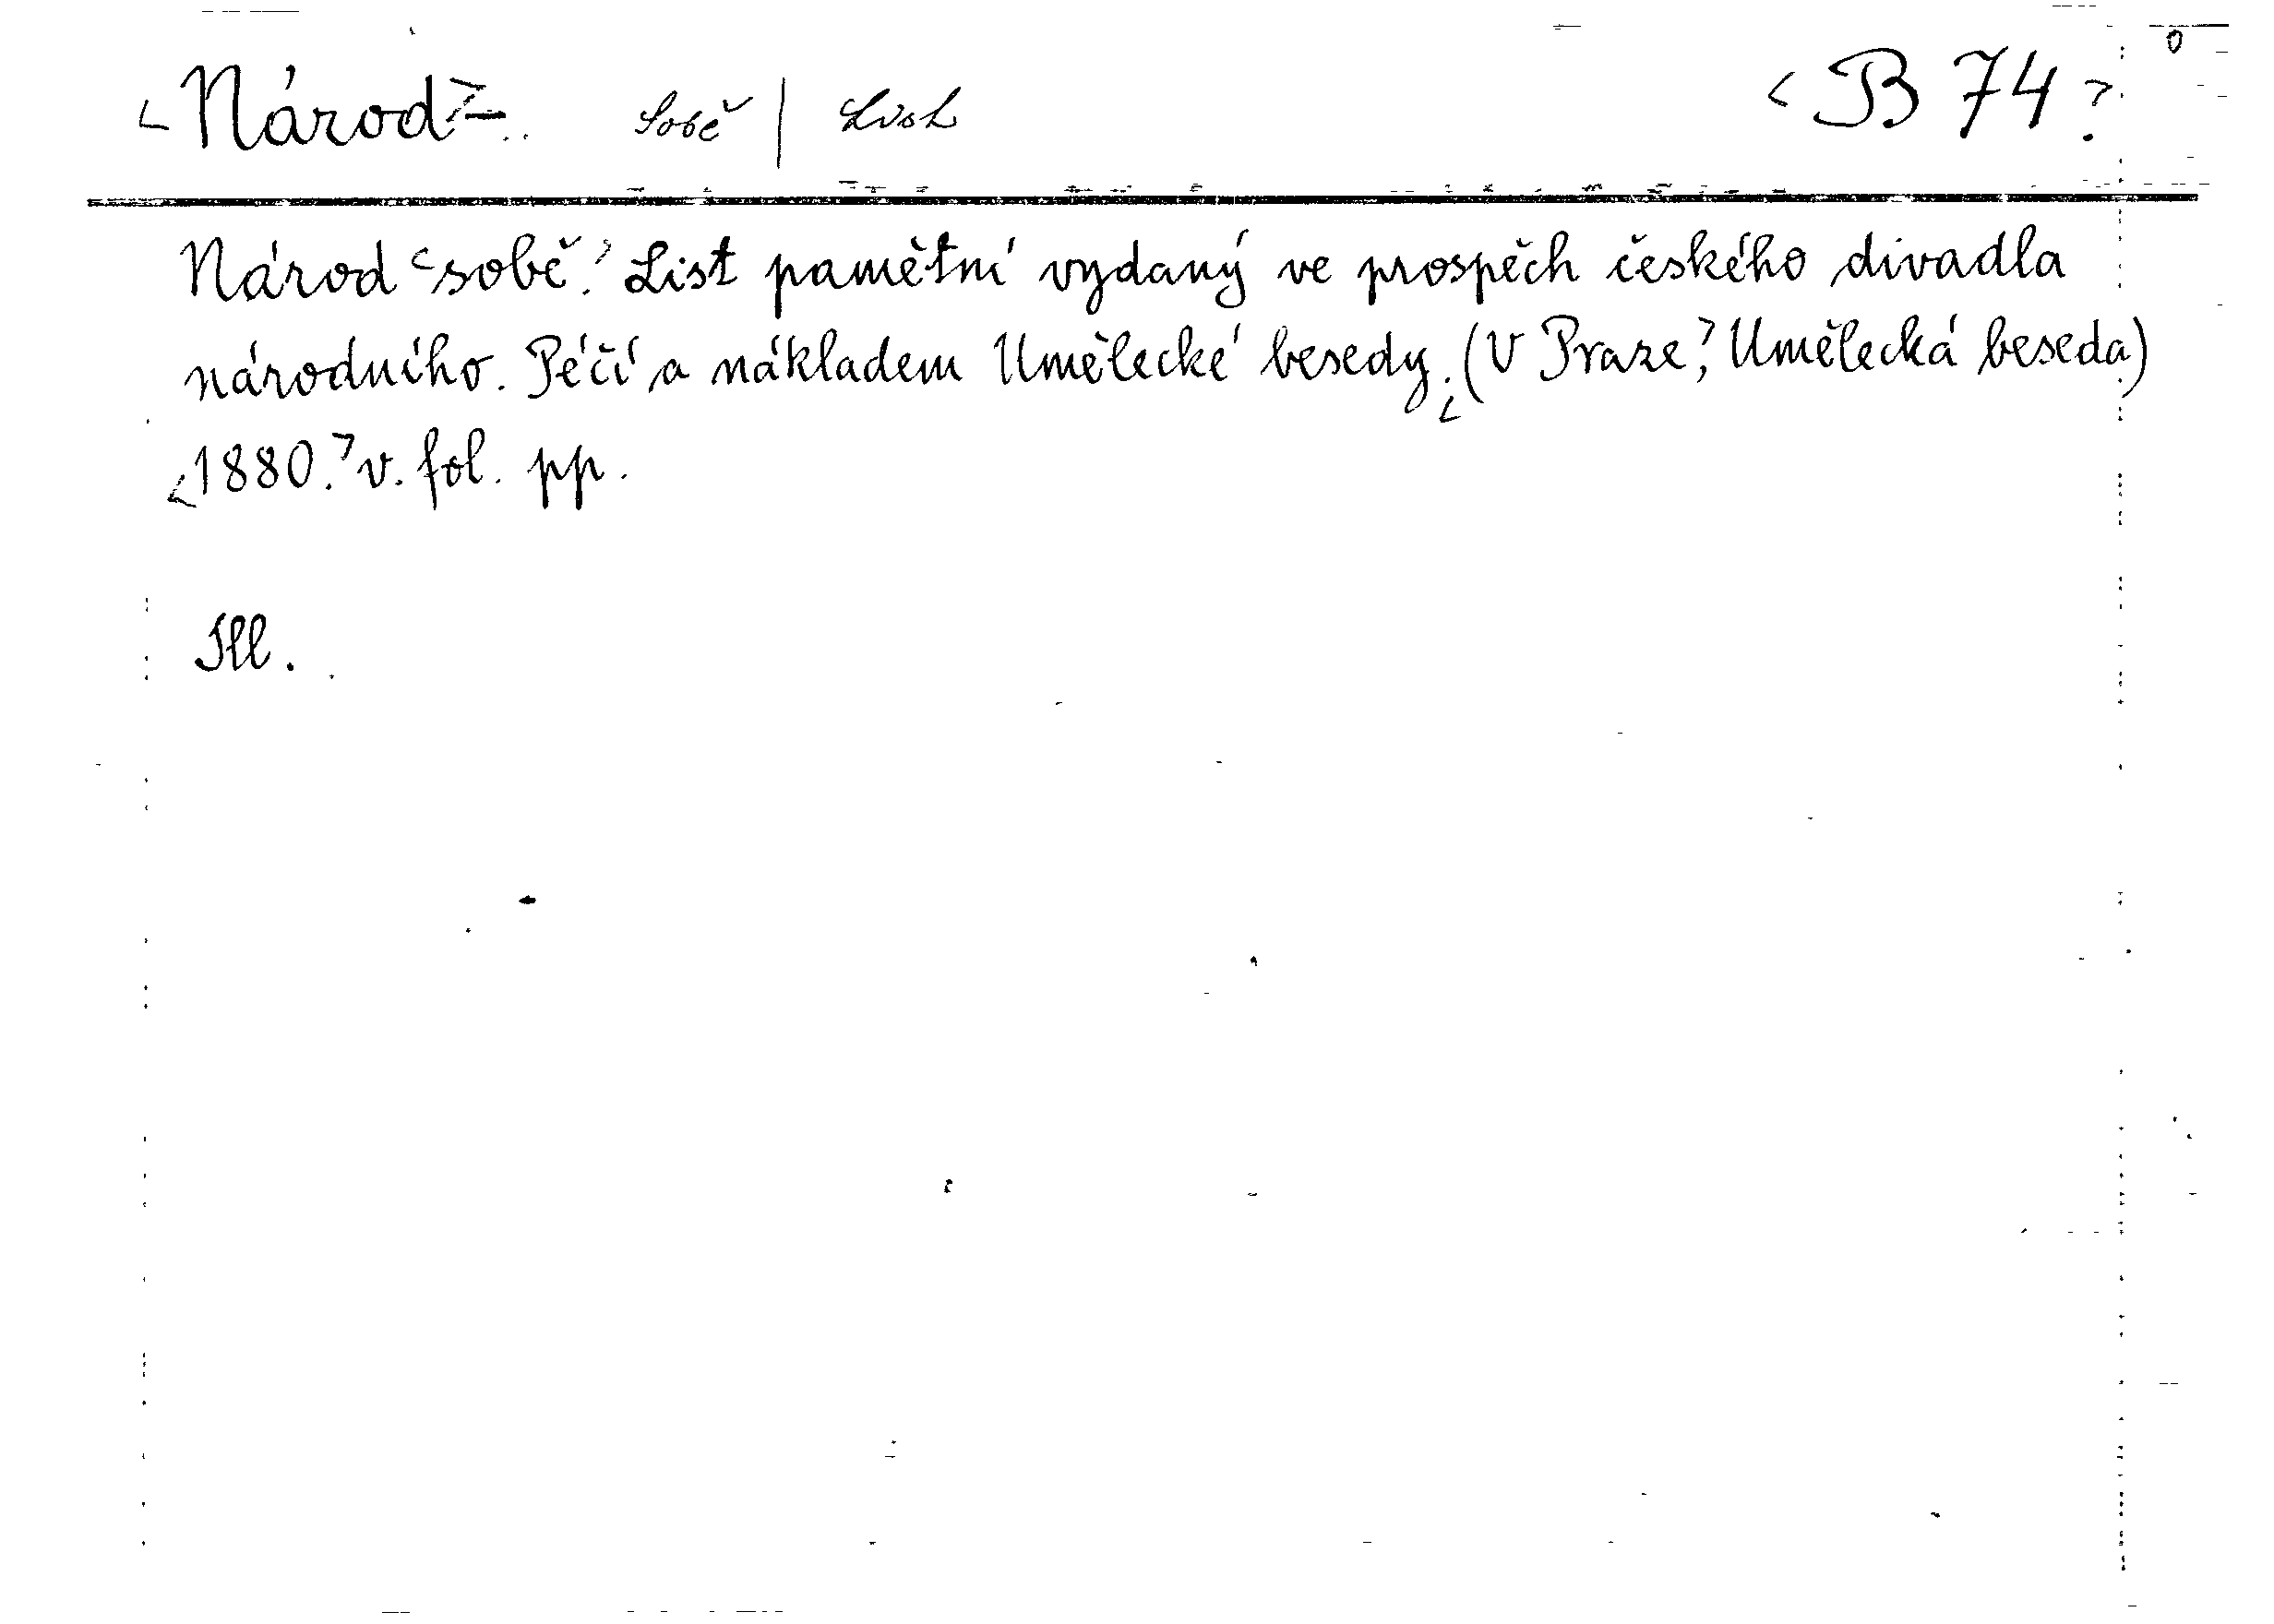 <Národ>- sobě | List <B 74>
Národ <sobě.> List pamětní vydaný ve prospěch českého divadla
národního. Péčí a nákladem Umělecké besedy. <(V Praze,> Umělecká beseda)
<1880.> v. fol. pp.
Ill.